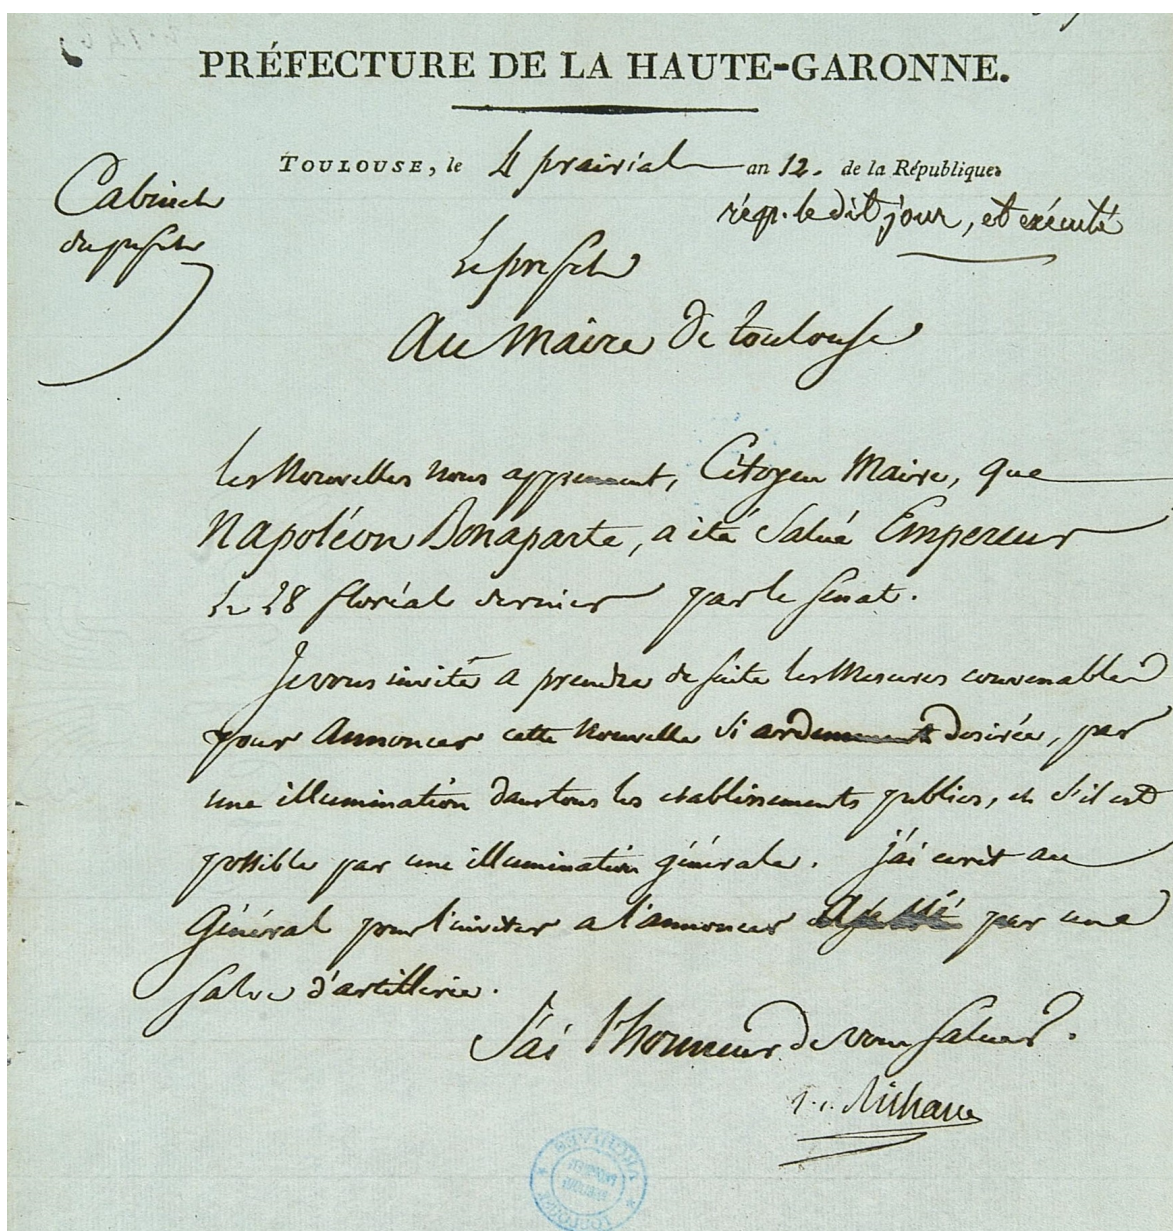 PRÉFECTURE DE LA HAUTE-GARONNE.
TOULOUSE, le 4 prairial an 12. de la République.
Cabinet
du prefet
rép. le dit jour, et exécuté
Le prefet
Au Maire de toulouse
les Nouvelles nous apprennent, Citoyen Maire, que
Napoléon Bonaparte, a été Salué Empereur
le 28 floréal dernier par le Senat.
Je vous invite a prendre de suite les Mesures convenables
pour Annoncer cette Nouvelle si ardemment desirée, par
une illumination dans tous les etablissements publics, et s'il est
possible par une illumination générale. j'ai ecrit au
Général pour l'inviter a l'annoncer par une
salve d'artillerie.
J'ai l'honneur de vous saluer.
Richard
ARCHIVES
TOULOUSE